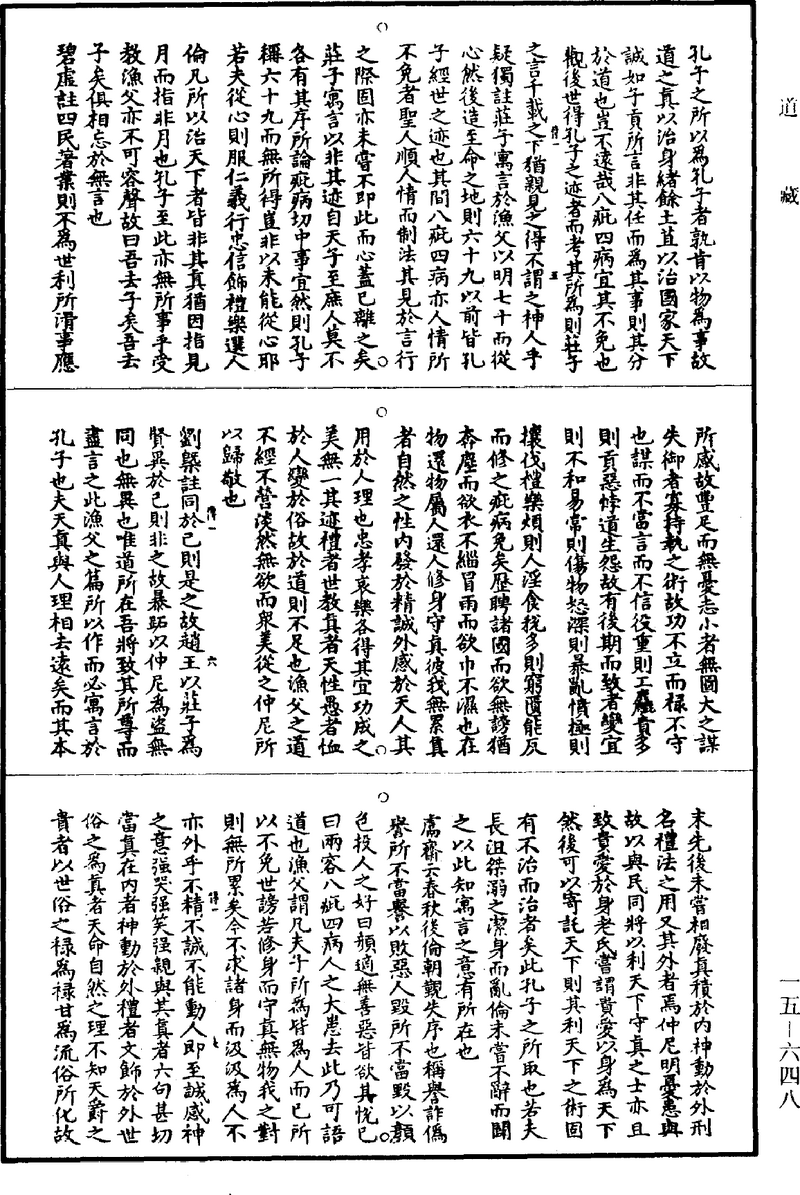 道藏
孔子之所以為孔子者孰肯以物為事故
道之真以治身緒餘土苴以治國家天下
誠如子貢所言非其任而為其事則其分
於道也豈不遠哉八疵四病宜其不免也
觀後世得孔子之迹者而考其所為則莊子
之言千載之下猶親見之得不謂之神人乎
疑獨註莊子寓言於漁父以明七十而從
心然後造至命之地則六十九以前皆孔
子經世之迹也其間八疵四病亦人情所
不免者聖人順人情而制法其見於言行
之際固亦未嘗不即此而心蓋已離之矣
莊子寓言以非其迹自天子至庶人莫不
各有其序所論疵病切中事宜然則孔子
稱六十九而無所得豈非以未能從心耶
若夫從心則服仁義行忠信飾禮樂選人
倫凡所以治天下者皆非其真猶因指見
月而指非月也孔子至此亦無所事乎受
教漁父亦不可容聲故曰吾去子矣吾去
子矣俱相忘於無言也
碧虛註四民著業則不為世利所滑事應
所感故豐足而無憂志小者無圖大之謀
失御者寡持執之術故功不立而祿不守
也謀而不當言而不信役重則工麤貴多
則貢惡悖道生怨故有後期而致者變宜
則不和易常則傷物怒深則暴亂憤極則
攘伐禮樂煩則人淫食拢多則窮匱能反
而修之疵病免矣歷聘諸國而欲無謗猶
奔塵而欲衣不緇冒雨而欲巾不濕也在
物還物屬人還人修身守真彼我無累真
者自然之性內發於精誠外感於天人其
用於人理也忠孝哀樂各得其宜功成之
美無一其迹禮者世教真者天性愚者恤
於人變於俗故於道則不足也漁父之道
不經不營淡然無欲而眾美從之仲尼所
以歸敬也
劉槩註同於己則是之故趙王以莊子為
賢異於己則非之故暴跖以仲尼為盜無
同也無異也唯道所在吾將致其所尊而
盡言之此漁父之篇所以作而必寓言於
孔子也夫天真與人理相去遠矣而其本
末先後未嘗相廢真積於內神動於外刑
名禮法之用又其外者焉仲尼明憂患與
故以與民同將以利天下守真之士亦且
致貴愛於身老氏嘗謂貴愛以身為天下
然後可以寄託天下則其利天下之術固
有不治而治者矣此孔子之所取也若夫
長沮桀溺之潔身而亂倫未嘗不辭而闢
之以此知寓言之意有所在也
鬳齋云春秋後倫朝覲失序也稱譽詐偽
譽所不當譽以敗惡人毀所不當毀以顏
色投人之好曰頰適無善惡皆欲其悅已
曰兩容八疵四病人之大患去此乃可語
道也漁父謂凡夫子所為皆為人而已所
以不免世謗若修身而守真無物我之對
則無所累矣今不求諸身而汲汲為人不
亦外乎不精不誠不能動人即至誠感神
之意強哭強笑強親與其真者六句甚切
當真在內者神動於外禮者文飾於外世
俗之為真者天命自然之理不知天爵之
貴者以世俗之祿為祿甘為流俗所化故
一五-六四八